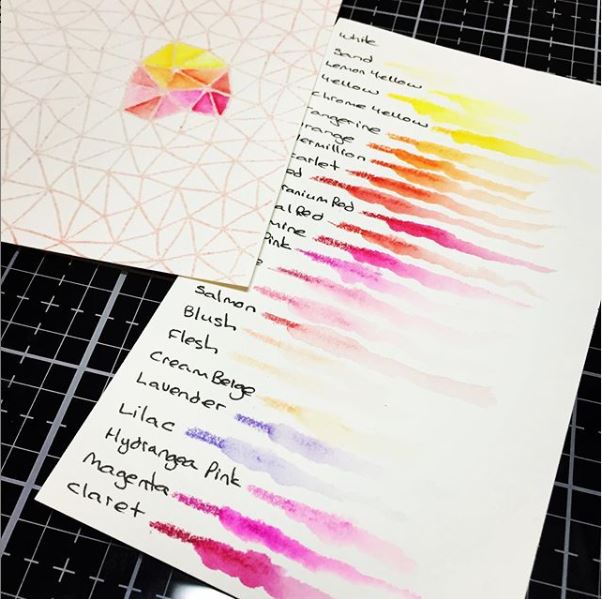 White
Sand
Lemon Yellow
Yellow
Chrome Yellow
angerine
range
ermillion
carlet
ed
ranium Red
al Red
mine
Pink
e
Salmon
Blush
Flesh
Cream Beige
Lavender
Lilac
Hydrangea Pink
Magenta
Claret